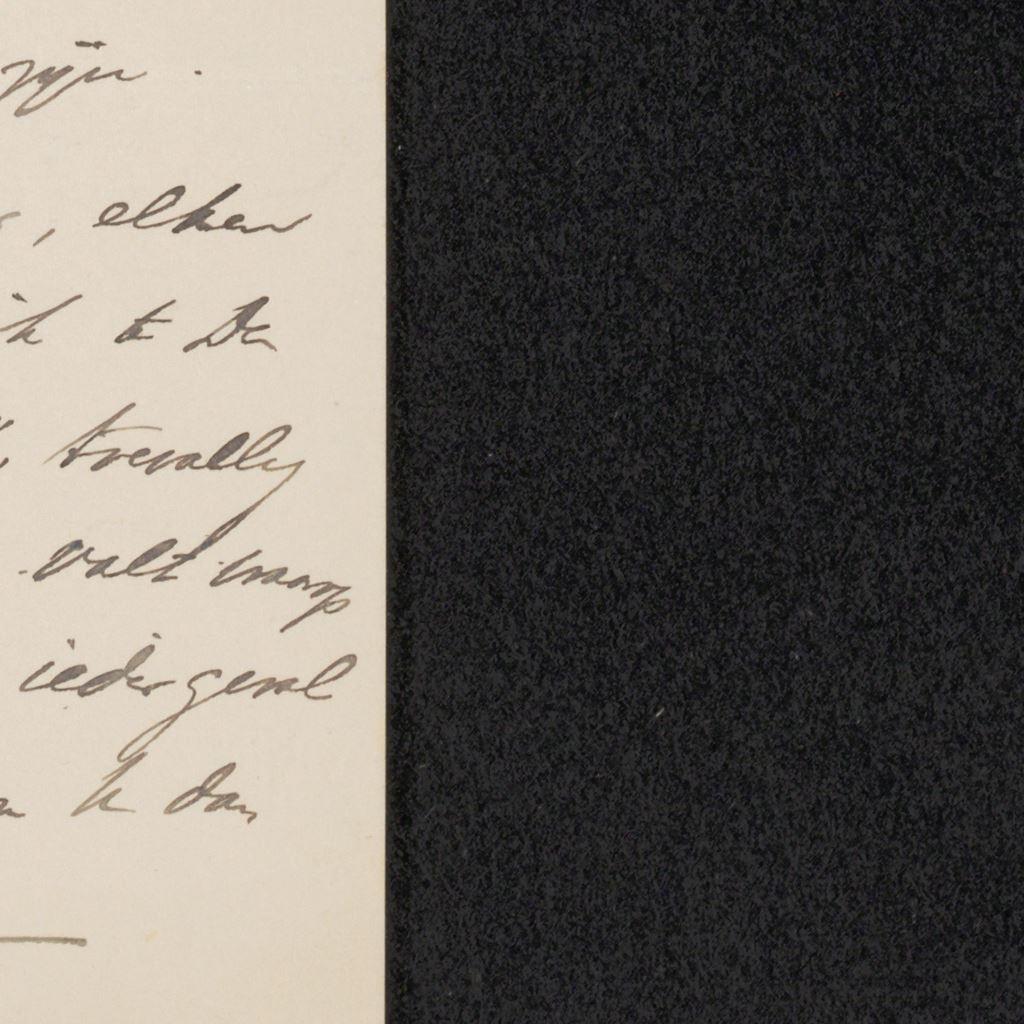 zijn.
, elken
ik te Den
toevallig
valt waarop
ieder geval
dan